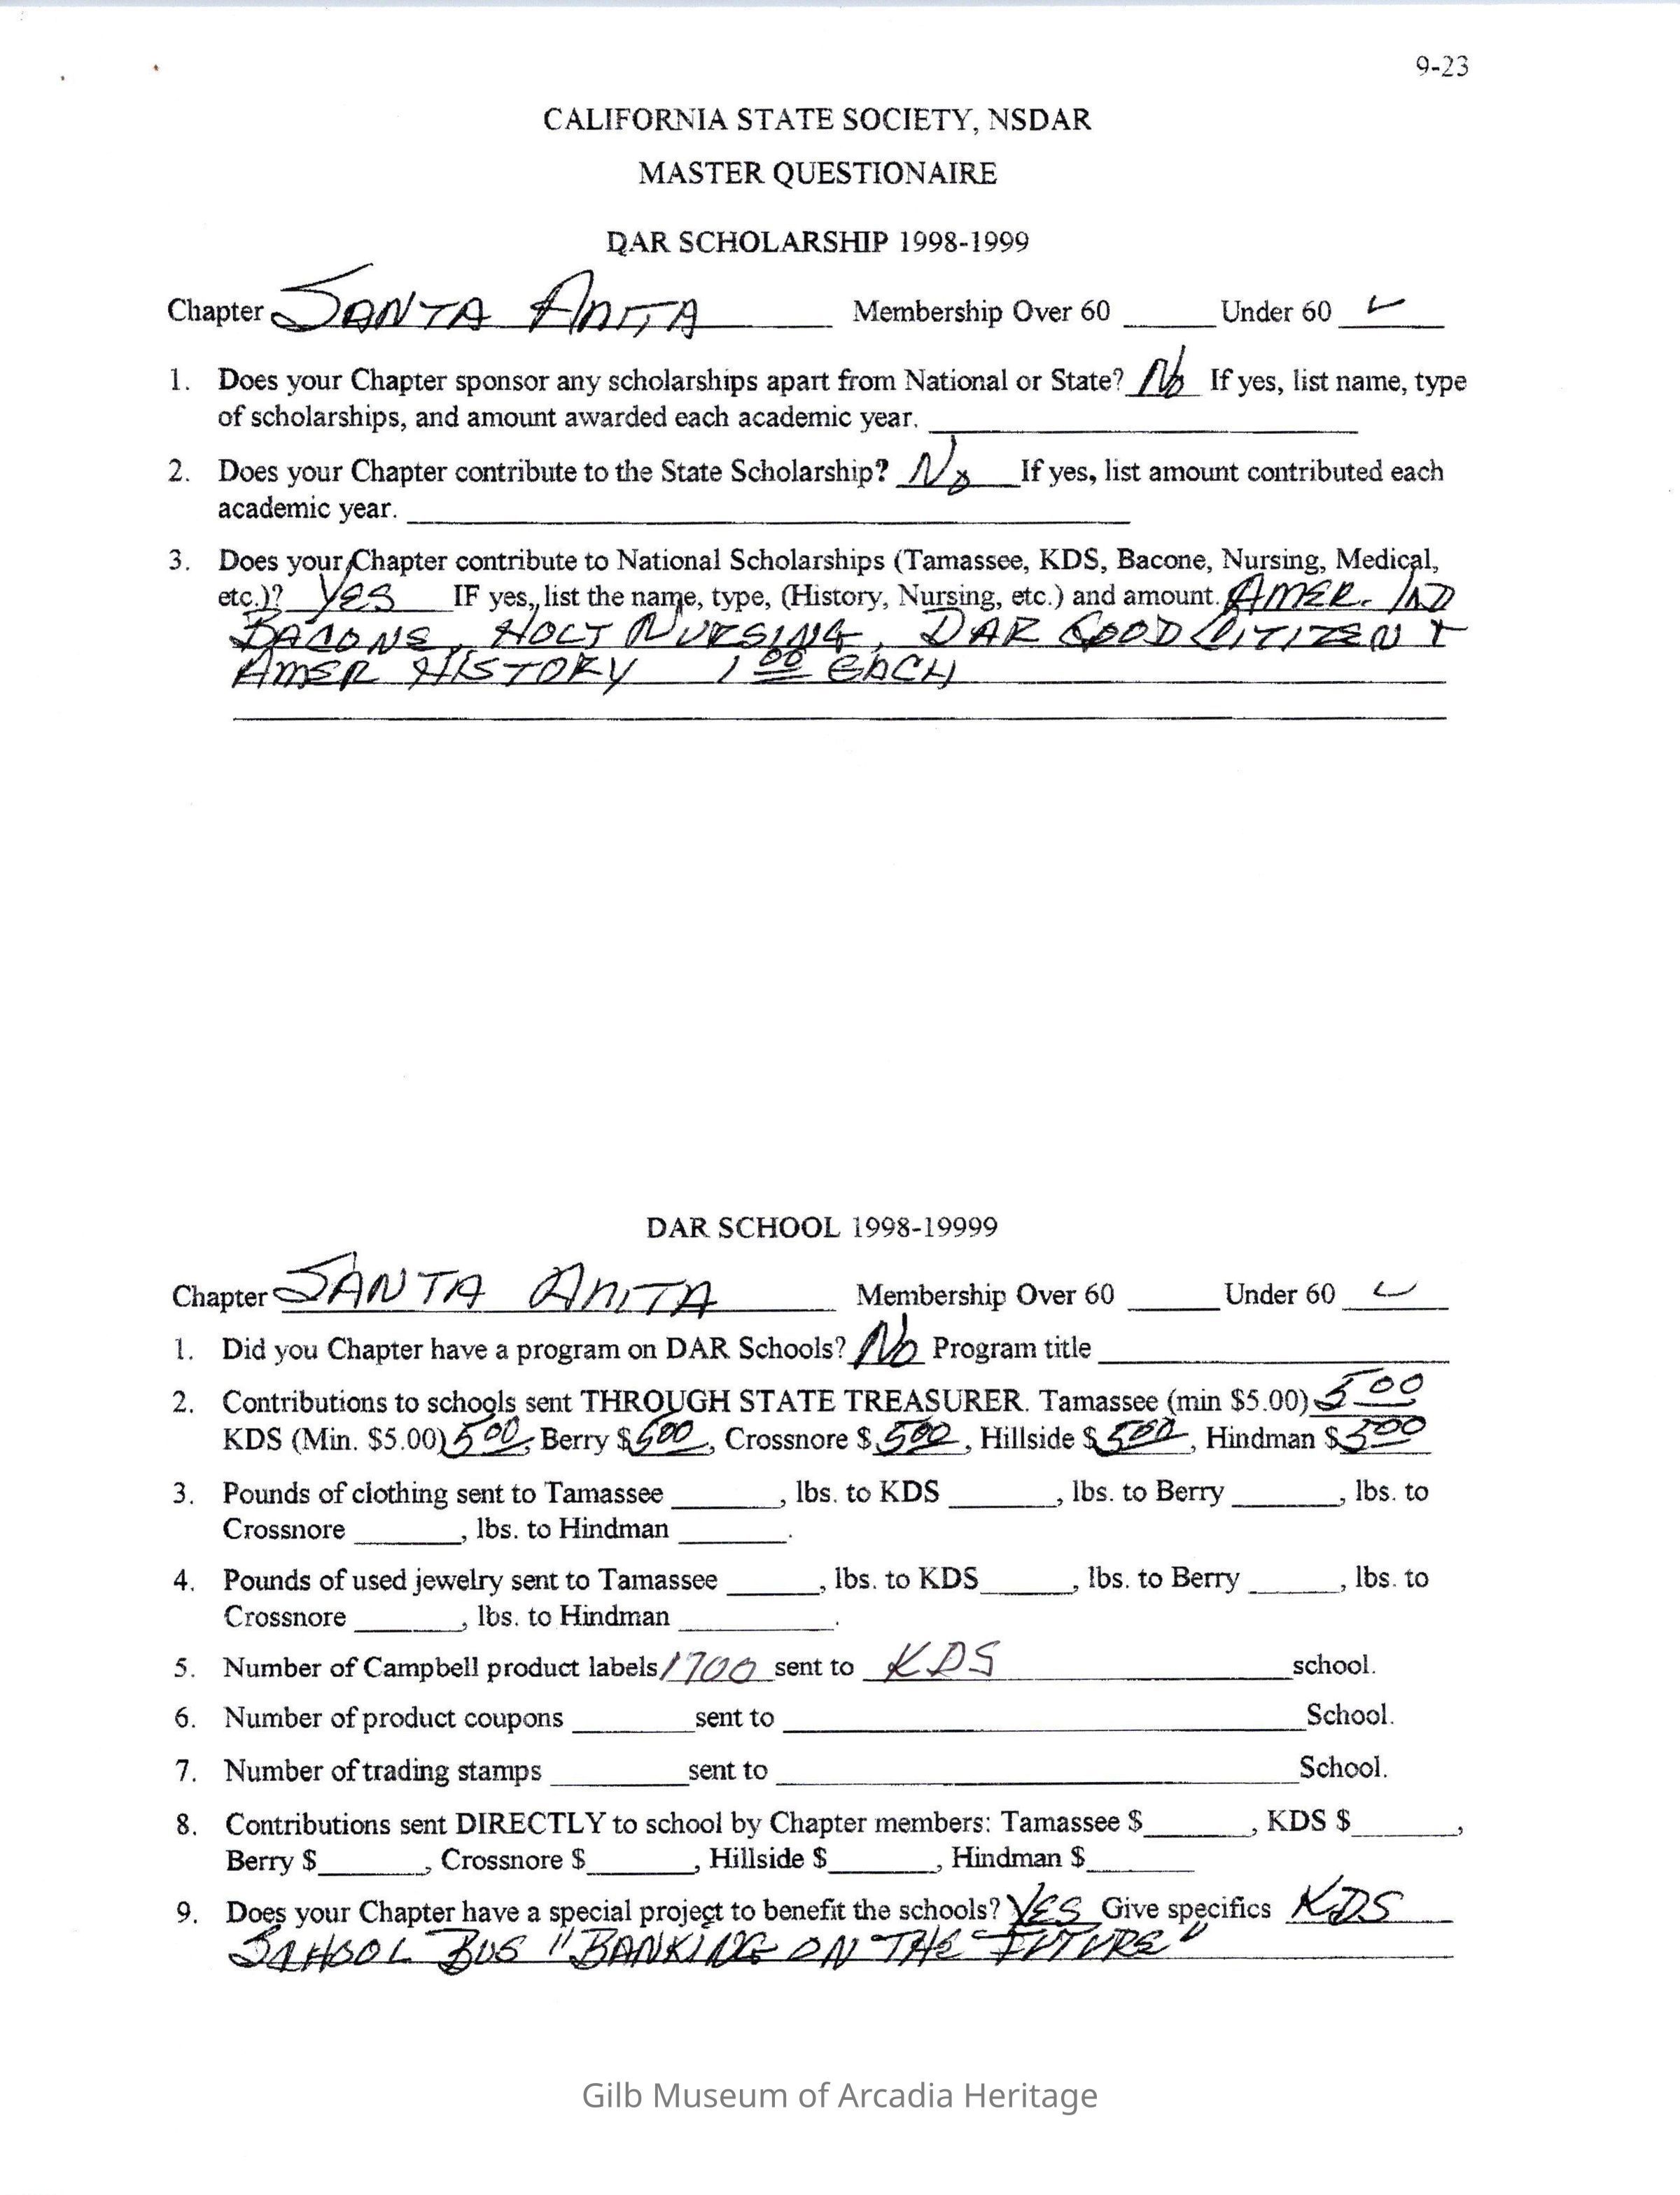 9-23
CALIFORNIA STATE SOCIETY, NSDAR
MASTER QUESTIONAIRE
DAR SCHOLARSHIP 1998-1999
Chapter SANTA ANITA Membership Over 60 ______ Under 60 ✓
1. Does your Chapter sponsor any scholarships apart from National or State? No If yes, list name, type
of scholarships, and amount awarded each academic year. ______
2. Does your Chapter contribute to the State Scholarship? No If yes, list amount contributed each
academic year. ______
3. Does your Chapter contribute to National Scholarships (Tamassee, KDS, Bacone, Nursing, Medical,
etc.)? YES IF yes, list the name, type, (History, Nursing, etc.) and amount. AMER. IND
BACONE, HOLT NURSING, DAR GOOD CITIZEN +
AMER HISTORY 1 00 EACH
DAR SCHOOL 1998-19999
Chapter SANTA ANITA Membership Over 60 ______ Under 60 ✓
1. Did you Chapter have a program on DAR Schools? No Program title ______
2. Contributions to schools sent THROUGH STATE TREASURER. Tamassee (min $5.00) 5 00
KDS (Min. $5.00) 5 00, Berry $ 5 00, Crossnore $ 5 00, Hillside $ 5 00, Hindman $ 5 00
3. Pounds of clothing sent to Tamassee ______, lbs. to KDS ______, lbs. to Berry ______, lbs. to
Crossnore ______, lbs. to Hindman ______.
4. Pounds of used jewelry sent to Tamassee ______, lbs. to KDS ______, lbs. to Berry ______, lbs. to
Crossnore ______, lbs. to Hindman ______.
5. Number of Campbell product labels 1700 sent to KDS school.
6. Number of product coupons ______ sent to ______ School.
7. Number of trading stamps ______ sent to ______ School.
8. Contributions sent DIRECTLY to school by Chapter members: Tamassee $______, KDS $______,
Berry $______, Crossnore $______, Hillside $______, Hindman $______
9. Does your Chapter have a special project to benefit the schools? YES Give specifics KDS
SCHOOL BUS "BANKING ON THE FUTURE"
Gilb Museum of Arcadia Heritage